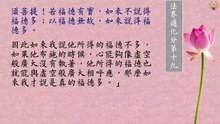 法界通化分第十九
須菩提！若福德有實，如來不說得
福德多。以福德無故，如來說得福
德多。
因此如來我說他所得的福德不多，
如果他有德的時候，心能夠像虛空
般廣大沒有執著，他所得的福德也
就能與虛空般廣大相呼應，那麼如
來我才說是真的福德多。」